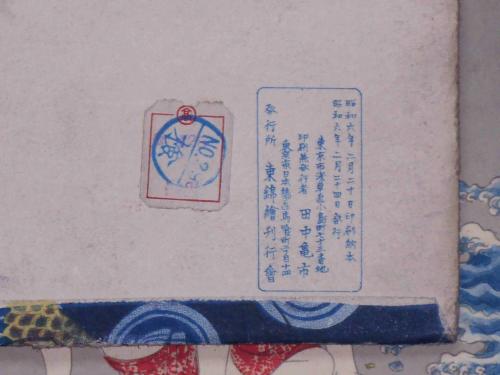 昭和六年二月二十日印刷納本
昭和六年二月二十四日發行
東京市浅草区小島町七十三番地
印刷兼發行者 田中亀市
東京日本橋
發行所 東錦繪刊行會
NO.2